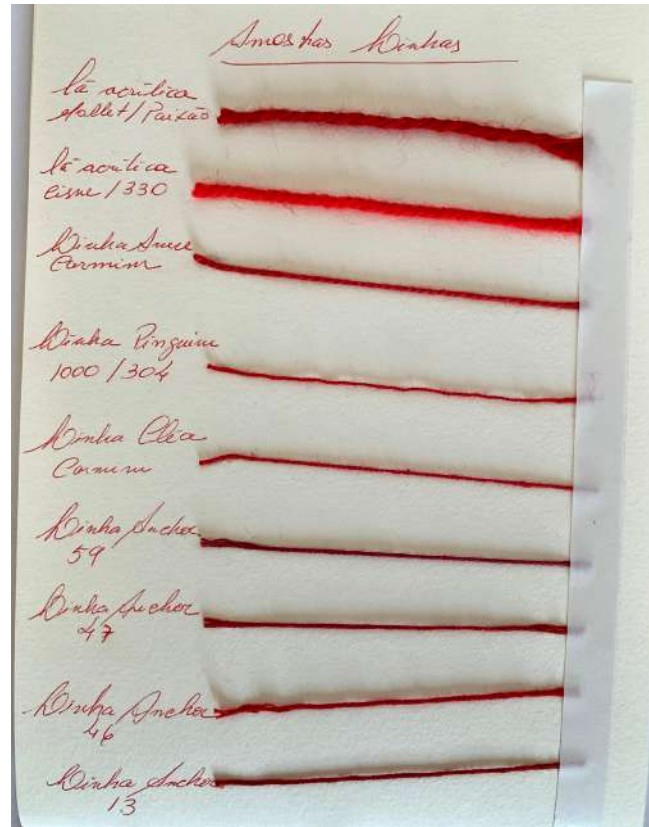 Amostras Linhas
lã acrílica
Mollet/Paixão
lã acrílica
cisne/330
Linha Anne
Carmim
Linha Pinguim
1000/304
Linha Cléa
Carmim
Linha Anchor
59
Linha Anchor
47
Linha Anchor
46
Linha Anchor
13